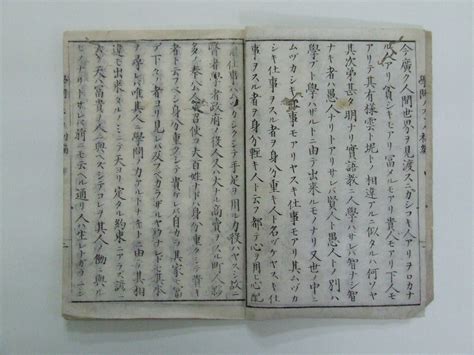 今廣ク人間世界ヲ見渡スニカシコキ人アリオロカナ
ルモアリ貧シキモアリ富メルモアリ貴人モアリ下人モ
アリテ其有様雲ト坭トノ相違アルニ似タルハ何ゾヤ
其次第甚タ明ナリ實語教ニ人學ハサレバ智ナシ智
ナキ者ハ愚人ナリトアリサレバ賢人ト愚人トノ別ハ
學フト學ハザルトニ由テ出来ルモノナリ又世ノ中ニ
ムヅカシキ仕事モアリヤスキ仕事モアリ其ムヅカ
シキ仕事ヲスル者ヲ身分重キ人ト名ヅケヤスキ仕
事ヲスル者ヲ身分輕キ人ト云フ都テ心ヲ用ヒ心配
スル仕事ハムヅカシクシテ手足ヲ用ル力役ハヤスシ故ニ
醫者學者政府ノ役人又ハ大ナル商賣ヲスル町人夥
多ノ奉公人ヲ召使フ大百姓ナドハ身分重クシテ貴キ
者ト云フベシ身分重クシテ貴ケレバ自カラ其家モ富テ
下々ノ者ヨリ見レバ及ブベカラザルヤウナレドモ其本ヲ
尋レバ唯其人ニ學問ノ力アルトナキトニ由テ其相
違モ出来タルノミニテ天ヨリ定タル約束ニアラズ諺ニ
云ク天ハ富貴ヲ人ニ與ヘズシテコレヲ其人ノ働ニ與ル
モノナリトサレバ前ニモ云ヘル通リ人ハ生レナガラニ